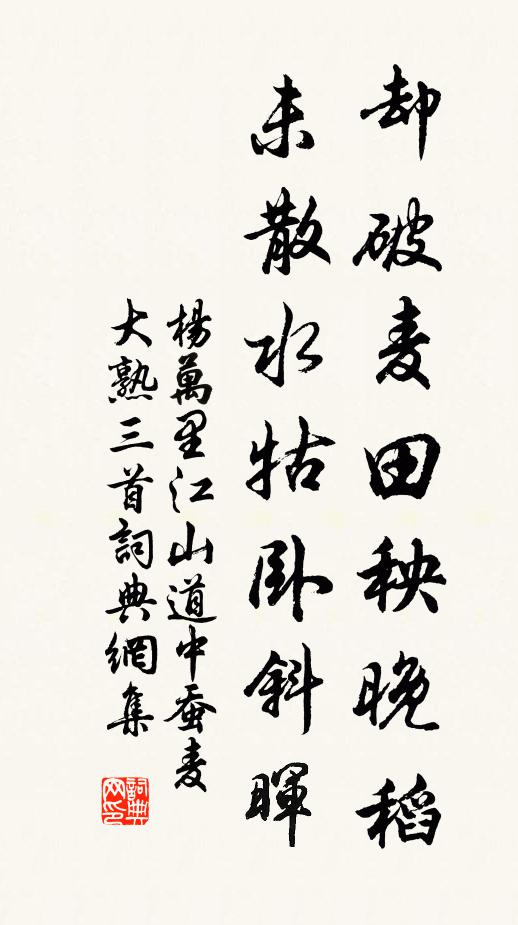 却破麦田秧晚稻
未散水牯卧斜暉
楊萬里江山道中蚕麦
大熟三首詞典網集
詞典
网印